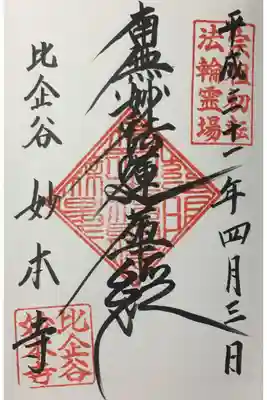 宗祖初転
法輪霊場
平成三十一年四月三日
南無妙法蓮華経
比企谷 妙本寺
比企谷
妙本寺